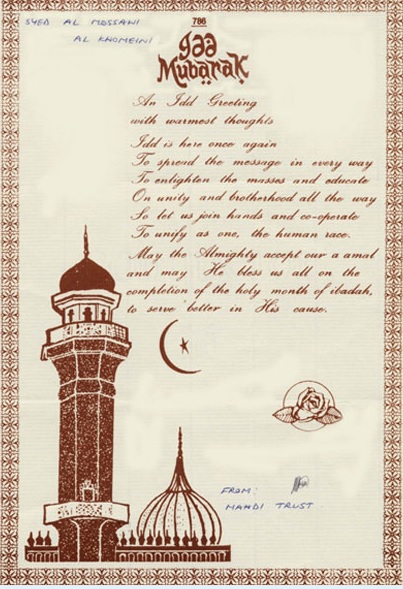 SYED AL MOSSAWI
AL KHOMEINI
786
Idd
Mubarak
An Idd Greeting
with warmest thoughts
Idd is here once again
To spread the message in every way
To enlighten the masses and educate
On unity and brotherhood all the way
So let us join hands and co-operate
To unify as one, the human race.
May the Almighty accept our a amal
and may He bless us all on the
completion of the holy month of ibadah,
to serve better in His cause.
FROM:
MAHDI TRUST